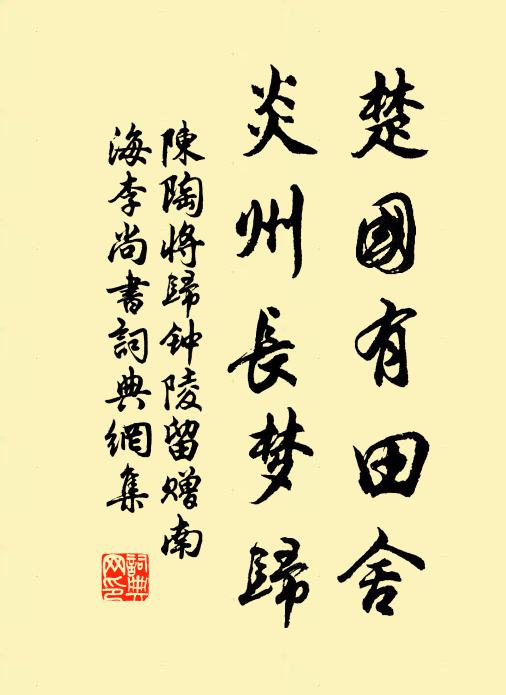 楚國有田舍
炎州長梦歸
陳陶将歸钟陵留赠南
海李尚書詞典網集
詞典
网印